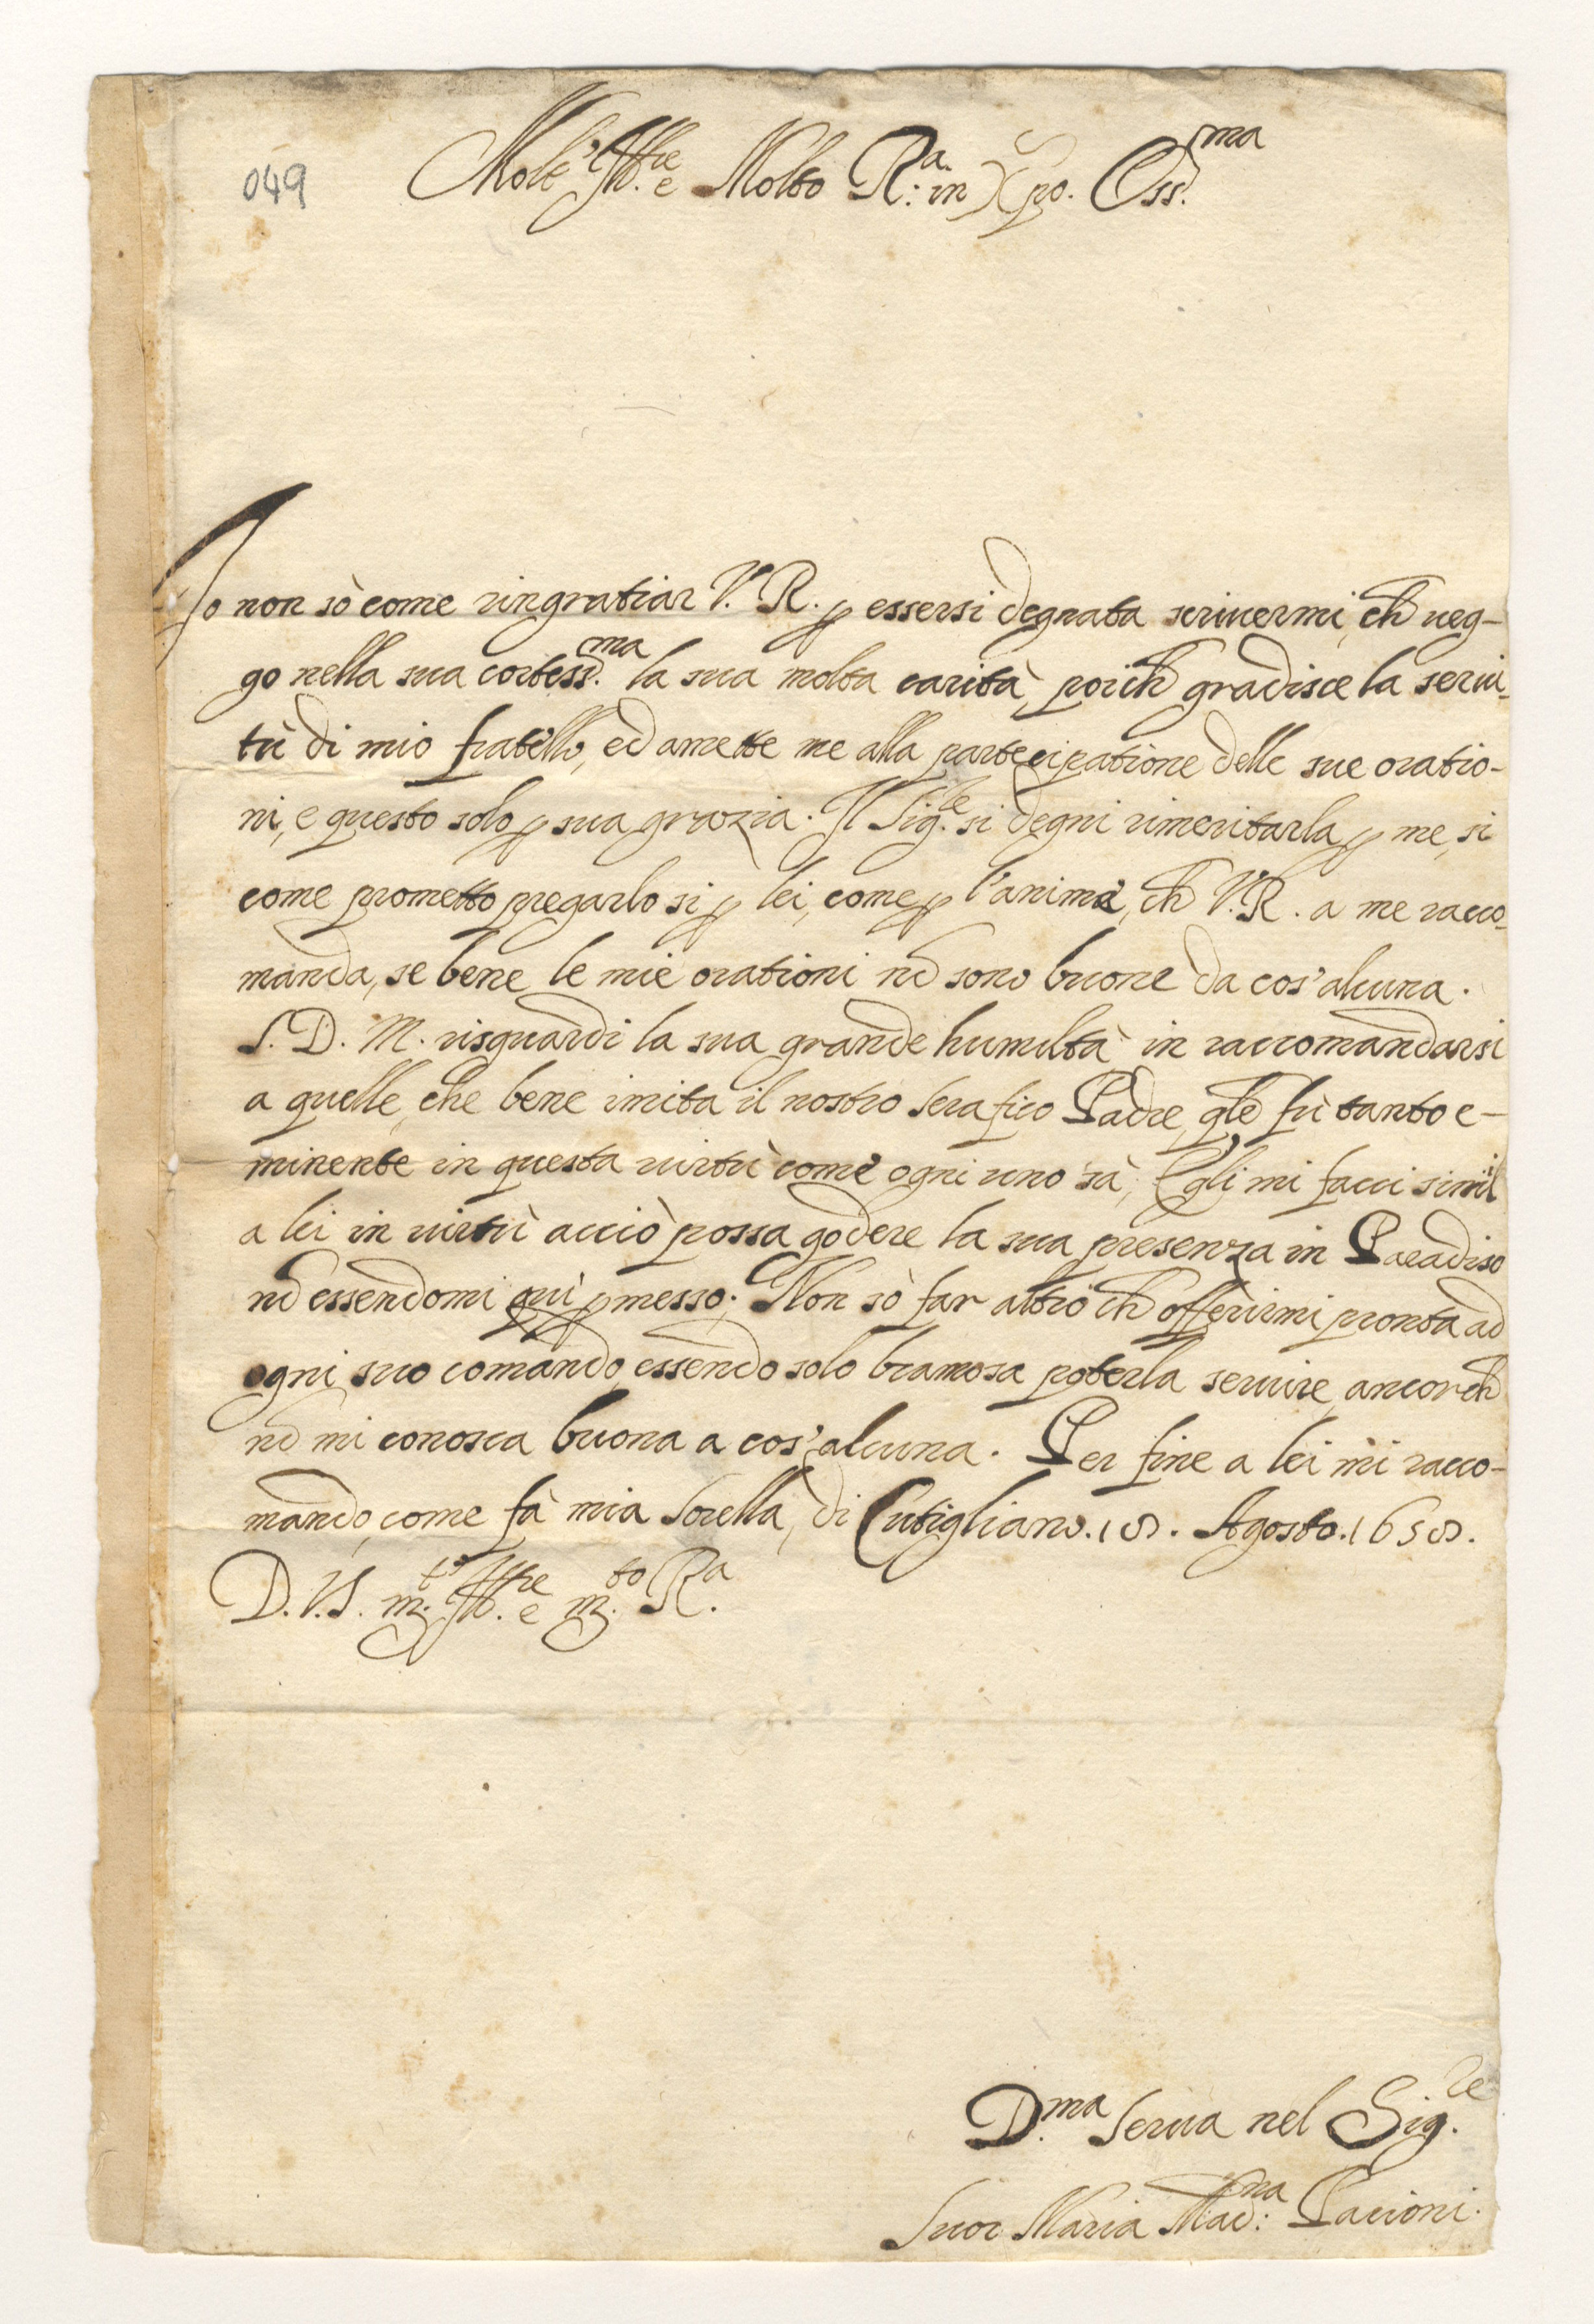 049
Molt' Ill.re e Molto R.a: in Xpo. Oss.ma
Io non sò come ringratiar V. R. p essersi degnata scriuermi, ch ueg-
go nella sua cortess.ma la sua molta carità, poich gradisce la seruì-
tù di mio fratello, ed amette me alla partecipatione delle sue oratio-
ni, e questo solo p sua grazia. Il Sig.re si degni rimeritarla p me, si
come prometto pregarlo si p lei, come p l'anima, ch V. R. a me racco-
manda, se bene le mie orationi nō sono buone da cos' alcuna.
S. D. M. risguardi la sua grande humiltà in raccomandarsi
a quelle, che bene imita il nostro Serafico Padre, qle fù tanto e-
minente in questa uirtù come ogni uno sà; Egli mi facci simil
a lei in uirtù acciò possa godere la sua presenza in Paradiso
nō essendomi quì pmesso. Non sò far altro ch offerirmi pronta ad
ogni suo comando, essendo solo bramosa poterla seruire, ancorch
nō mi conosca buona a cos' alcuna. Per fine a lei mi racco-
mando, come fà mia Sorella, di Cutigliano. 18. Agosto. 1658.
D. V. S. m.to Ill.re e m.to R.a
D.ma Serua nel Sig.re
Suor Maria Mad.na: Pacioni.